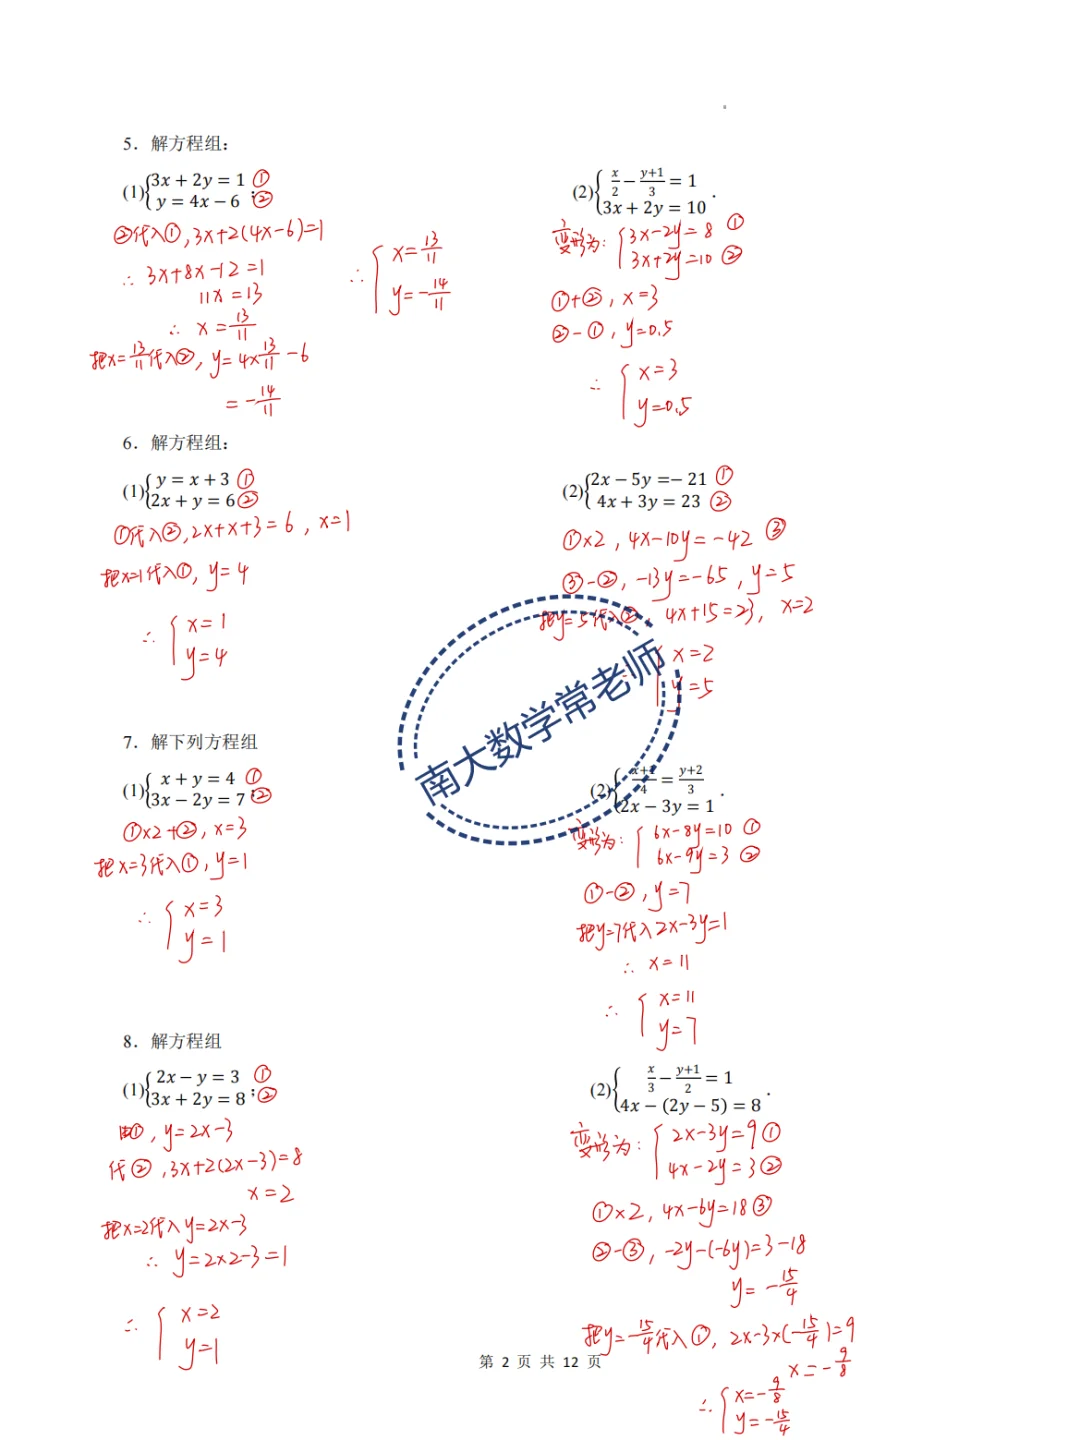 5. 解方程组:
(1){3x + 2y = 1 ①
y = 4x − 6 ; ②
②代入①, 3x+2(4x-6)=1
∴ 3x+8x-12=1
11x=13
∴ x=13/11
把x=13/11代入②, y=4×13/11-6
=-14/11
∴ {x=13/11
y=-14/11
(2){x/2 − (y+1)/3 = 1
3x + 2y = 10 .
变形为: {3x-2y=8 ①
3x+2y=10 ②
①+②, x=3
②-①, y=0.5
∴ {x=3
y=0.5
6. 解方程组:
(1){y = x + 3 ①
2x + y = 6 ②
①代入②, 2x+x+3=6, x=1
把x=1代入①, y=4
∴ {x=1
y=4
(2){2x − 5y =− 21 ①
4x + 3y = 23 ②
①×2, 4x-10y=-42 ③
③-②, -13y=-65, y=5
把y=5代入②, 4x+15=23, x=2
{x=2
y=5
南大数学常老师
7. 解下列方程组
(1){x + y = 4 ①
3x − 2y = 7 ; ②
①×2+②, x=3
把x=3代入①, y=1
∴ {x=3
y=1
(2){(x+1)/4 = (y+2)/3
2x − 3y = 1 .
变形为: {6x-8y=10 ①
6x-9y=3 ②
①-②, y=7
把y=7代入2x-3y=1
∴ x=11
∴ {x=11
y=7
8. 解方程组
(1){2x − y = 3 ①
3x + 2y = 8 ; ②
由①, y=2x-3
代②, 3x+2(2x-3)=8
x=2
把x=2代入y=2x-3
∴ y=2×2-3=1
∴ {x=2
y=1
(2){x/3 − (y+1)/2 = 1
4x − (2y − 5) = 8 .
变形为: {2x-3y=9 ①
4x-2y=3 ②
①×2, 4x-6y=18 ③
②-③, -2y-(-6y)=3-18
y=-15/4
把y=-15/4代入①, 2x-3×(-15/4)=9
x=-9/8
∴ {x=-9/8
y=-15/4
第 2 页 共 12 页